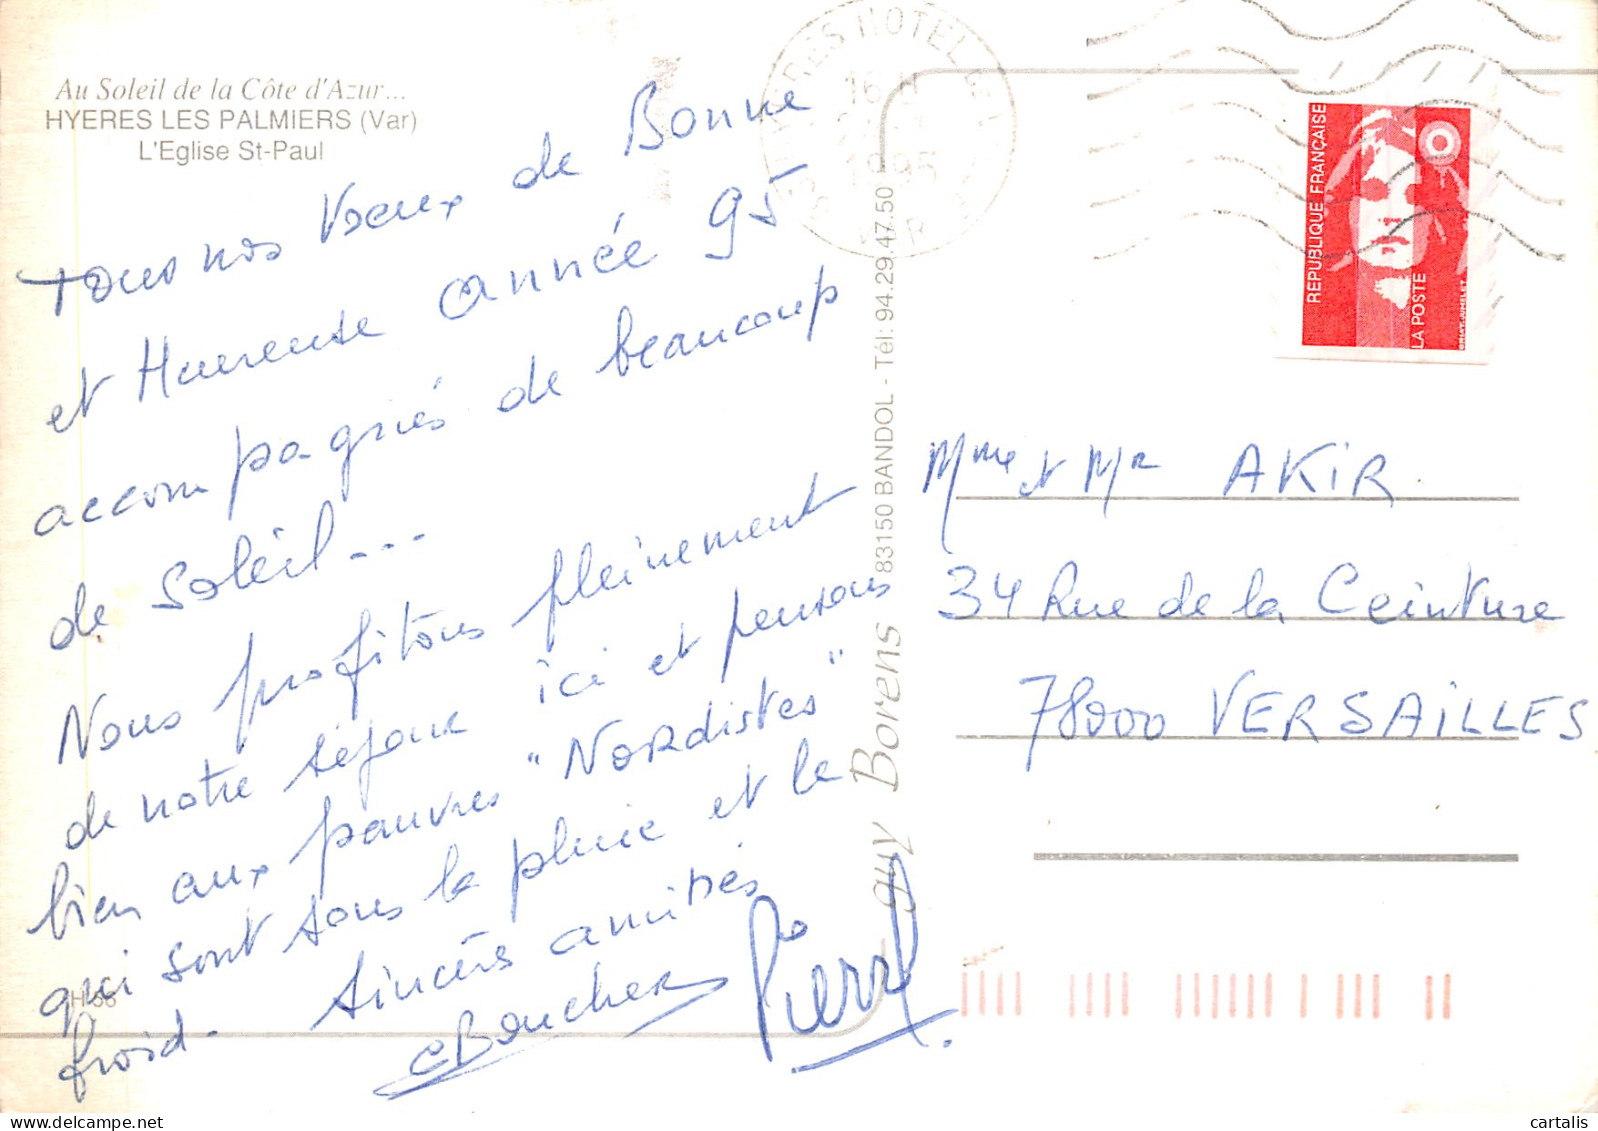 Au Soleil de la Côte d'Azur...
HYERES LES PALMIERS (Var)
L'Eglise St-Paul
Tous nos Vœux de Bonne
et Heureuse année 95
accompagnés de beaucoup
de soleil...
Nous profitons pleinement
de notre séjour ici et pensons
bien aux pauvres "Nordistes"
qui sont sous la pluie et le
froid. Sincères amitiés
CBoucher Pierre
guy Borens 83150 BANDOL - Tél: 94.29.47.50
HOTEL
16 H
1995
VAR
REPUBLIQUE FRANÇAISE
LA POSTE
Mme et Mr AKIR.
34 Rue de la Ceinture
78000 VERSAILLES
cartalis